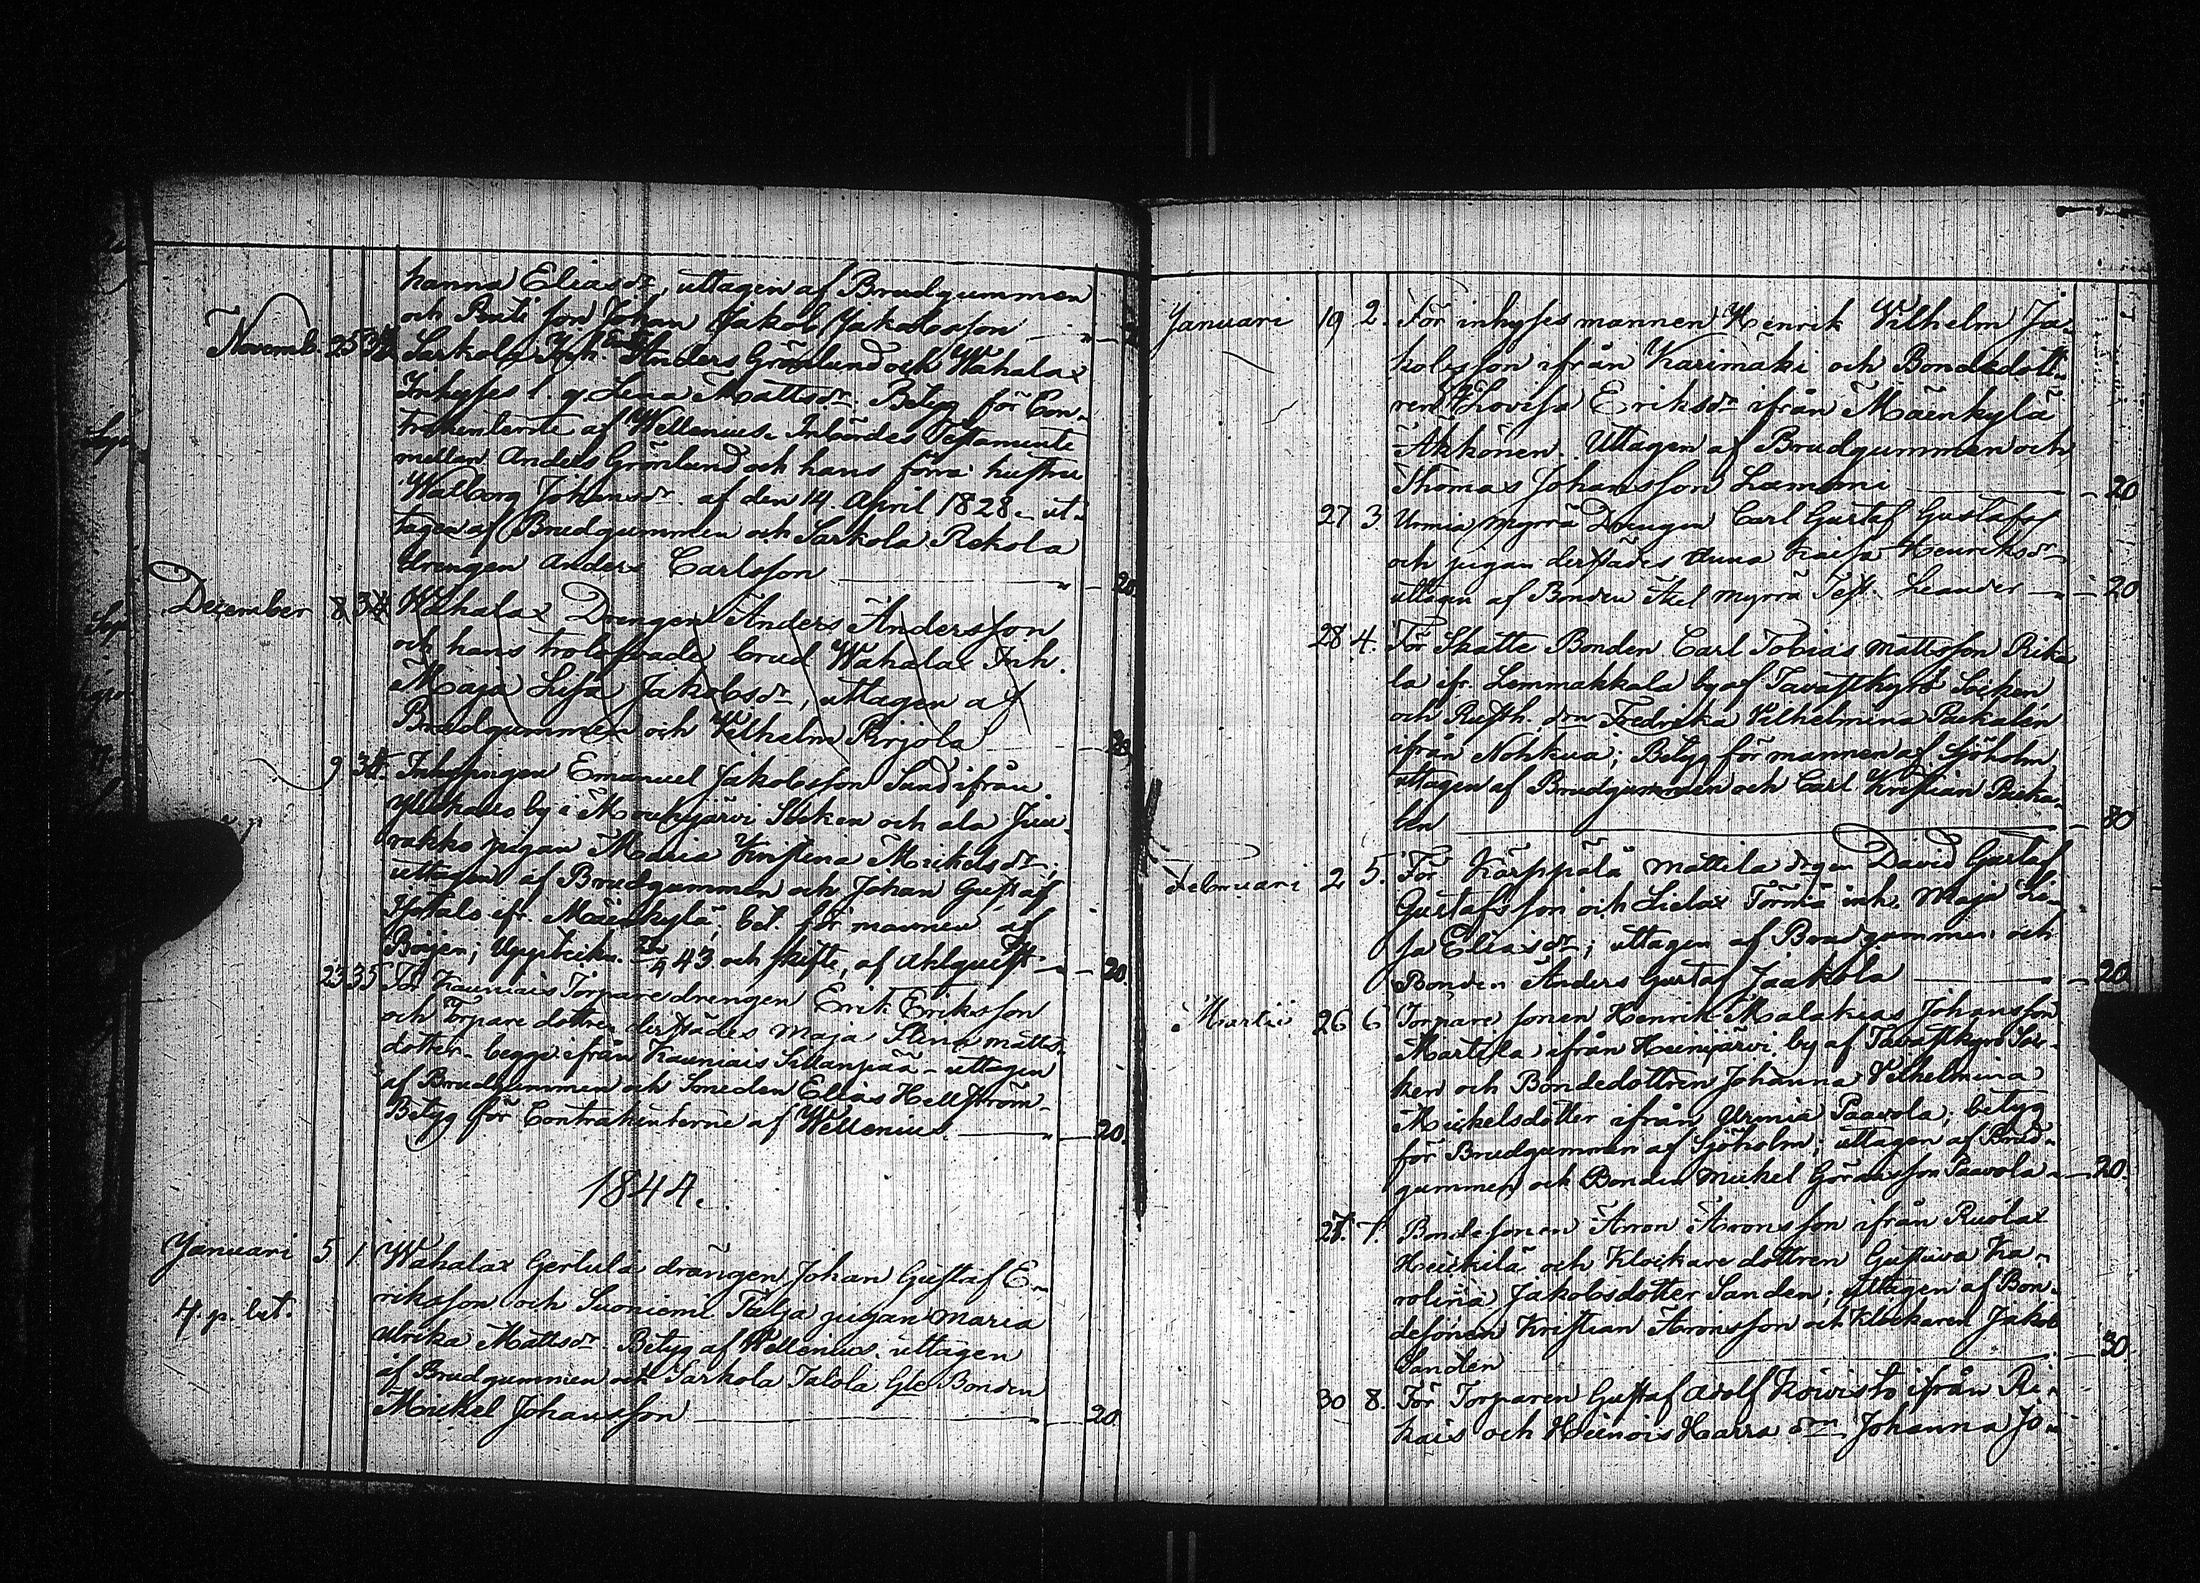 hanna Eliasdr, uttagen af Brudgummen
och Johan Jakob Jakobsson
Novemb. 25 Sarkola Inh. Anders Grönlund och Wahalax
Inhyses l. g. Lena Mattsdr. Betyg för Con-
trahenterne af Wellenius. Inbördes Testamente
mellan Anders Grönlund och hans förra hustru
Walborg Johansdr. af den 14. April 1828. ut-
tagen af Brudgummen och Sarkola Rekola
drengen Anders Carlsson — 20
Dezember 8 Wahalax Drengen Anders Andersson
och hans trolofvade brud Wahalax Inh.
Maja Lisa Jakobsdr, uttagen af
Brudgummen och Vilhelm Pirjola — 20
9 34. Inhysingen Emanuel Jakobsson Sand ifrån
by i Mouhijärvi Socken och ala Juu-
rakko pigan Maria Kristina Mickelsdr;
uttagen af Brudgummen och Johan Gustaf
ifr. Mäenkylä; bet. för mannen af
43 och skifte, af Ahlquist — 20.
23 35 För Kauniais Torparedrengen Erik Eriksson
och Torparedottren derstädes Maja Stina Matts-
dotter begge ifrån Kauniais Sillanpää – uttagen
af Brudgummen och Smeden Elias Hellström.
Betyg för Contrahenterne af Wellenius. — 20.
1844.
Januari 5 1 Wahalax Gertula drängen Johan Gustaf E-
riksson och Suoniemi pigan Maria
4. p. bet. Ulrika Mattsdr. Betyg af Wellenius. uttagen
af Brudgummen och Sarkola Talola Bonden
Mickel Johansson — 20
Januari 19 2. För inhyses mannen Henrik Vilhelm Ja-
kobsson ifrån Karimäki och Bondedott-
ren Lovisa Eriksdr ifrån Mäenkylä
Äkkönen. Uttagen af Brudgummen och
Thomas Johansson Lammi — 20
27 3 Urmia Myrrä Drengen Carl Gustaf Gustafss
och pigan derstädes Anna Kaisa Henriksdr
uttagen af Bonden Axel Myrrä Test. Leander — 20
28 4. För Skatte Bonden Carl Tobias Mattsson Riku
la ifr. Lemmakkala by af Tavastkyrö Socken
och Rusth. drn Fredrika Vilhelmina Packalen
ifrån Nohkua; Betyg för mannen af Sjöholm
uttagen af Brudgummen och Carl Kristian Packa-
len — 80
Februari 2 5. För Karppälä Mattila drgen David Gustaf
Gustafsson och Lielax Törmä inh. Maja Li-
sa Eliasdr; uttagen af Brudgummen och
Bonden Anders Gustaf Jaakola — 20
Martii 26 6 Torpare sonen Henrik Malakias Johansson
Martila ifrån Heinijärvi by af Tavastkyrö Soc-
ken och Bondedottren Johanna Vilhelmina
Mickelsdotter ifrån Urmia Paavola; betyg
för Brudgummen af Sjöholm; uttagen af Brud-
gummen och Bonden Mickel Göransson Paavola — 20.
27. 7. Bondesonen Aron Aronsson ifrån Ruolax
Heickilä och Klockare dottren Gustava Ka-
rolina Jakobsdotter Sanden; Uttagen af Bon-
desonen Kristian Aronsson och Klockaren Jakob
Sanden — 30.
30 8. För Torparen Gustaf Adolf Koivisto ifrån Ri-
kais och Heinois Harra drn Johanna Jo-